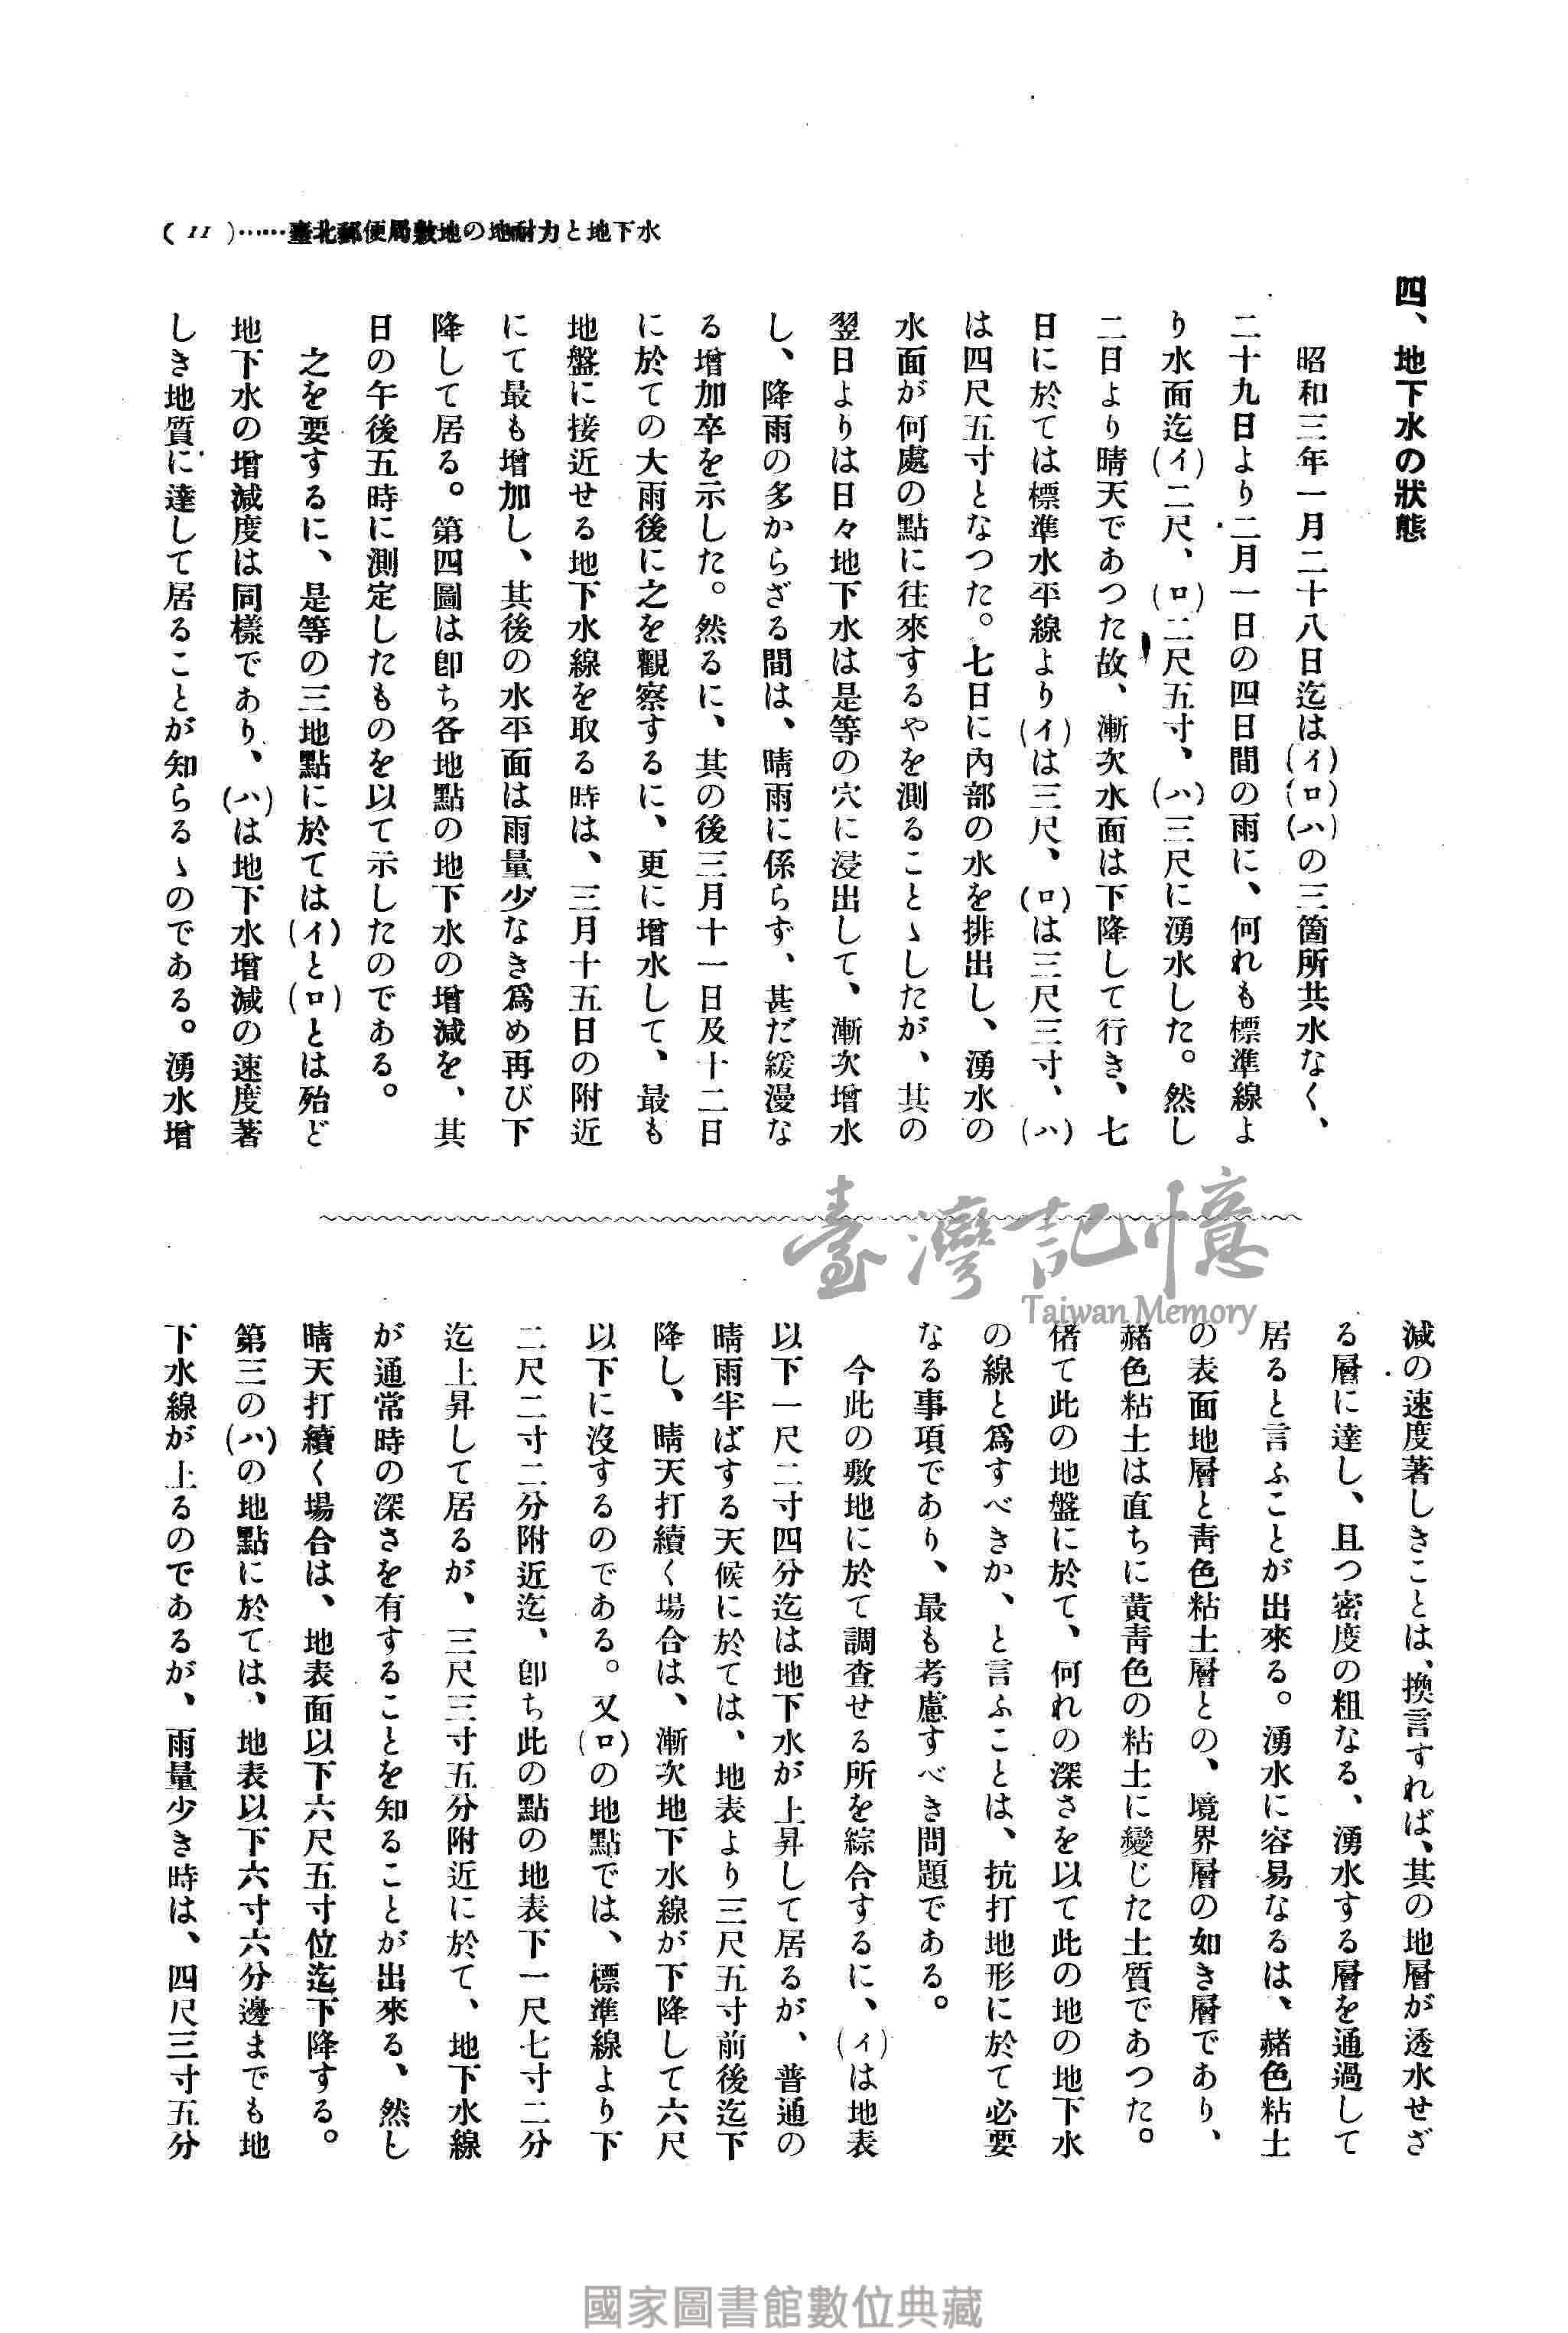 ( 11 )……臺北郵便局敷地の地耐力と地下水
四、地下水の狀態
昭和三年一月二十八日迄は(イ)(ロ)(ハ)の三箇所共水なく、
二十九日より二月一日の四日間の雨に、何れも標準線よ
り水面迄(イ)二尺、(ロ)二尺五寸、(ハ)三尺に湧水した。然し
二日より晴天であつた故、漸次水面は下降して行き、七
日に於ては標準水平線より(イ)は三尺、(ロ)は三尺三寸、(ハ)
は四尺五寸となつた。七日に內部の水を排出し、湧水の
水面が何處の點に往來するやを測ることゝしたが、其の
翌日よりは日々地下水は是等の穴に浸出して、漸次增水
し、降雨の多からざる間は、晴雨に係らず、甚だ緩漫な
る增加卒を示した。然るに、其の後三月十一日及十二日
に於ての大雨後に之を觀察するに、更に增水して、最も
地盤に接近せる地下水線を取る時は、三月十五日の附近
にて最も增加し、其後の水平面は雨量少なき爲め再び下
降して居る。第四圖は卽ち各地點の地下水の增減を、其
日の午後五時に測定したものを以て示したのである。
之を要するに、是等の三地點に於ては(イ)と(ロ)とは殆ど
地下水の增減度は同樣であり、(ハ)は地下水增減の速度著
しき地質に達して居ることが知らるゝのである。湧水增
減の速度著しきことは、換言すれば、其の地層が透水せざ
る層に達し、且つ密度の粗なる、湧水する層を通過して
居ると言ふことが出來る。湧水に容易なるは、赭色粘土
の表面地層と靑色粘土層との、境界層の如き層であり、
赭色粘土は直ちに黃靑色の粘土に變じた土質であつた。
偖て此の地盤に於て、何れの深さを以て此の地の地下水
の線と爲すべきか、と言ふことは、抗打地形に於て必要
なる事項であり、最も考慮すべき問題である。
今此の敷地に於て調査せる所を綜合するに、(イ)は地表
以下一尺二寸四分迄は地下水が上昇して居るが、普通の
晴雨半ばする天候に於ては、地表より三尺五寸前後迄下
降し、晴天打續く場合は、漸次地下水線が下降して六尺
以下に沒するのである。又(ロ)の地點では、標準線より下
二尺二寸二分附近迄、卽ち此の點の地表下一尺七寸二分
迄上昇して居るが、三尺三寸五分附近に於て、地下水線
が通常時の深さを有することを知ることが出來る、然し
晴天打續く場合は、地表面以下六尺五寸位迄下降する。
第三の(ハ)の地點に於ては、地表以下六寸六分邊までも地
下水線が上るのであるが、雨量少き時は、四尺三寸五分
臺灣記憶
Taiwan Memory
國家圖書館數位典藏